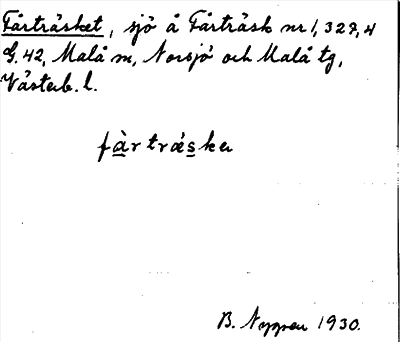 Fårträsket, sjö å Fårträsk nr 1, 329, 4
G. 42, Malå m, Norsjö och Malå tg,
Västerb. l.
fàrtræska
B. Nygren 1930.